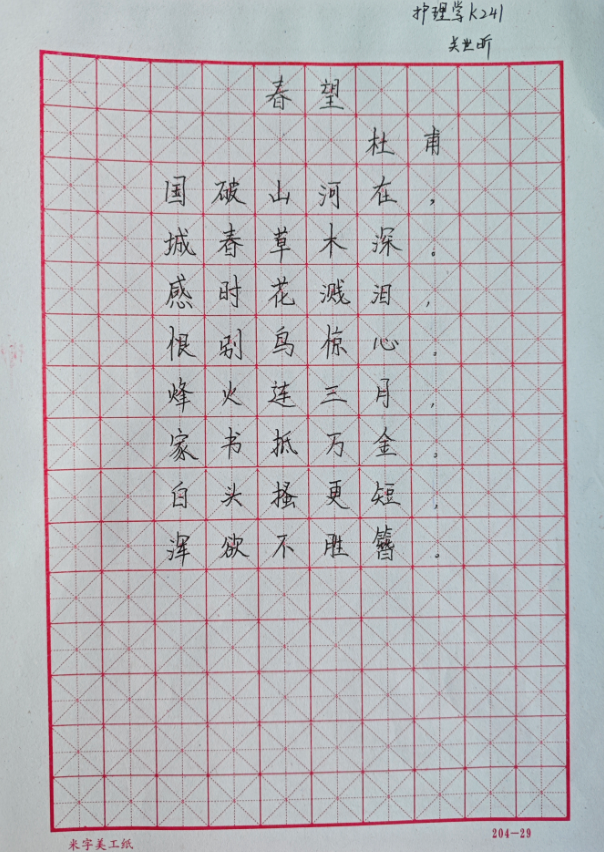 护理学K241
关世昕
春望
杜甫
国破山河在，
城春草木深。
感时花溅泪，
恨别鸟惊心。
烽火连三月，
家书抵万金。
白头搔更短，
浑欲不胜簪。
米字美工纸
204-29